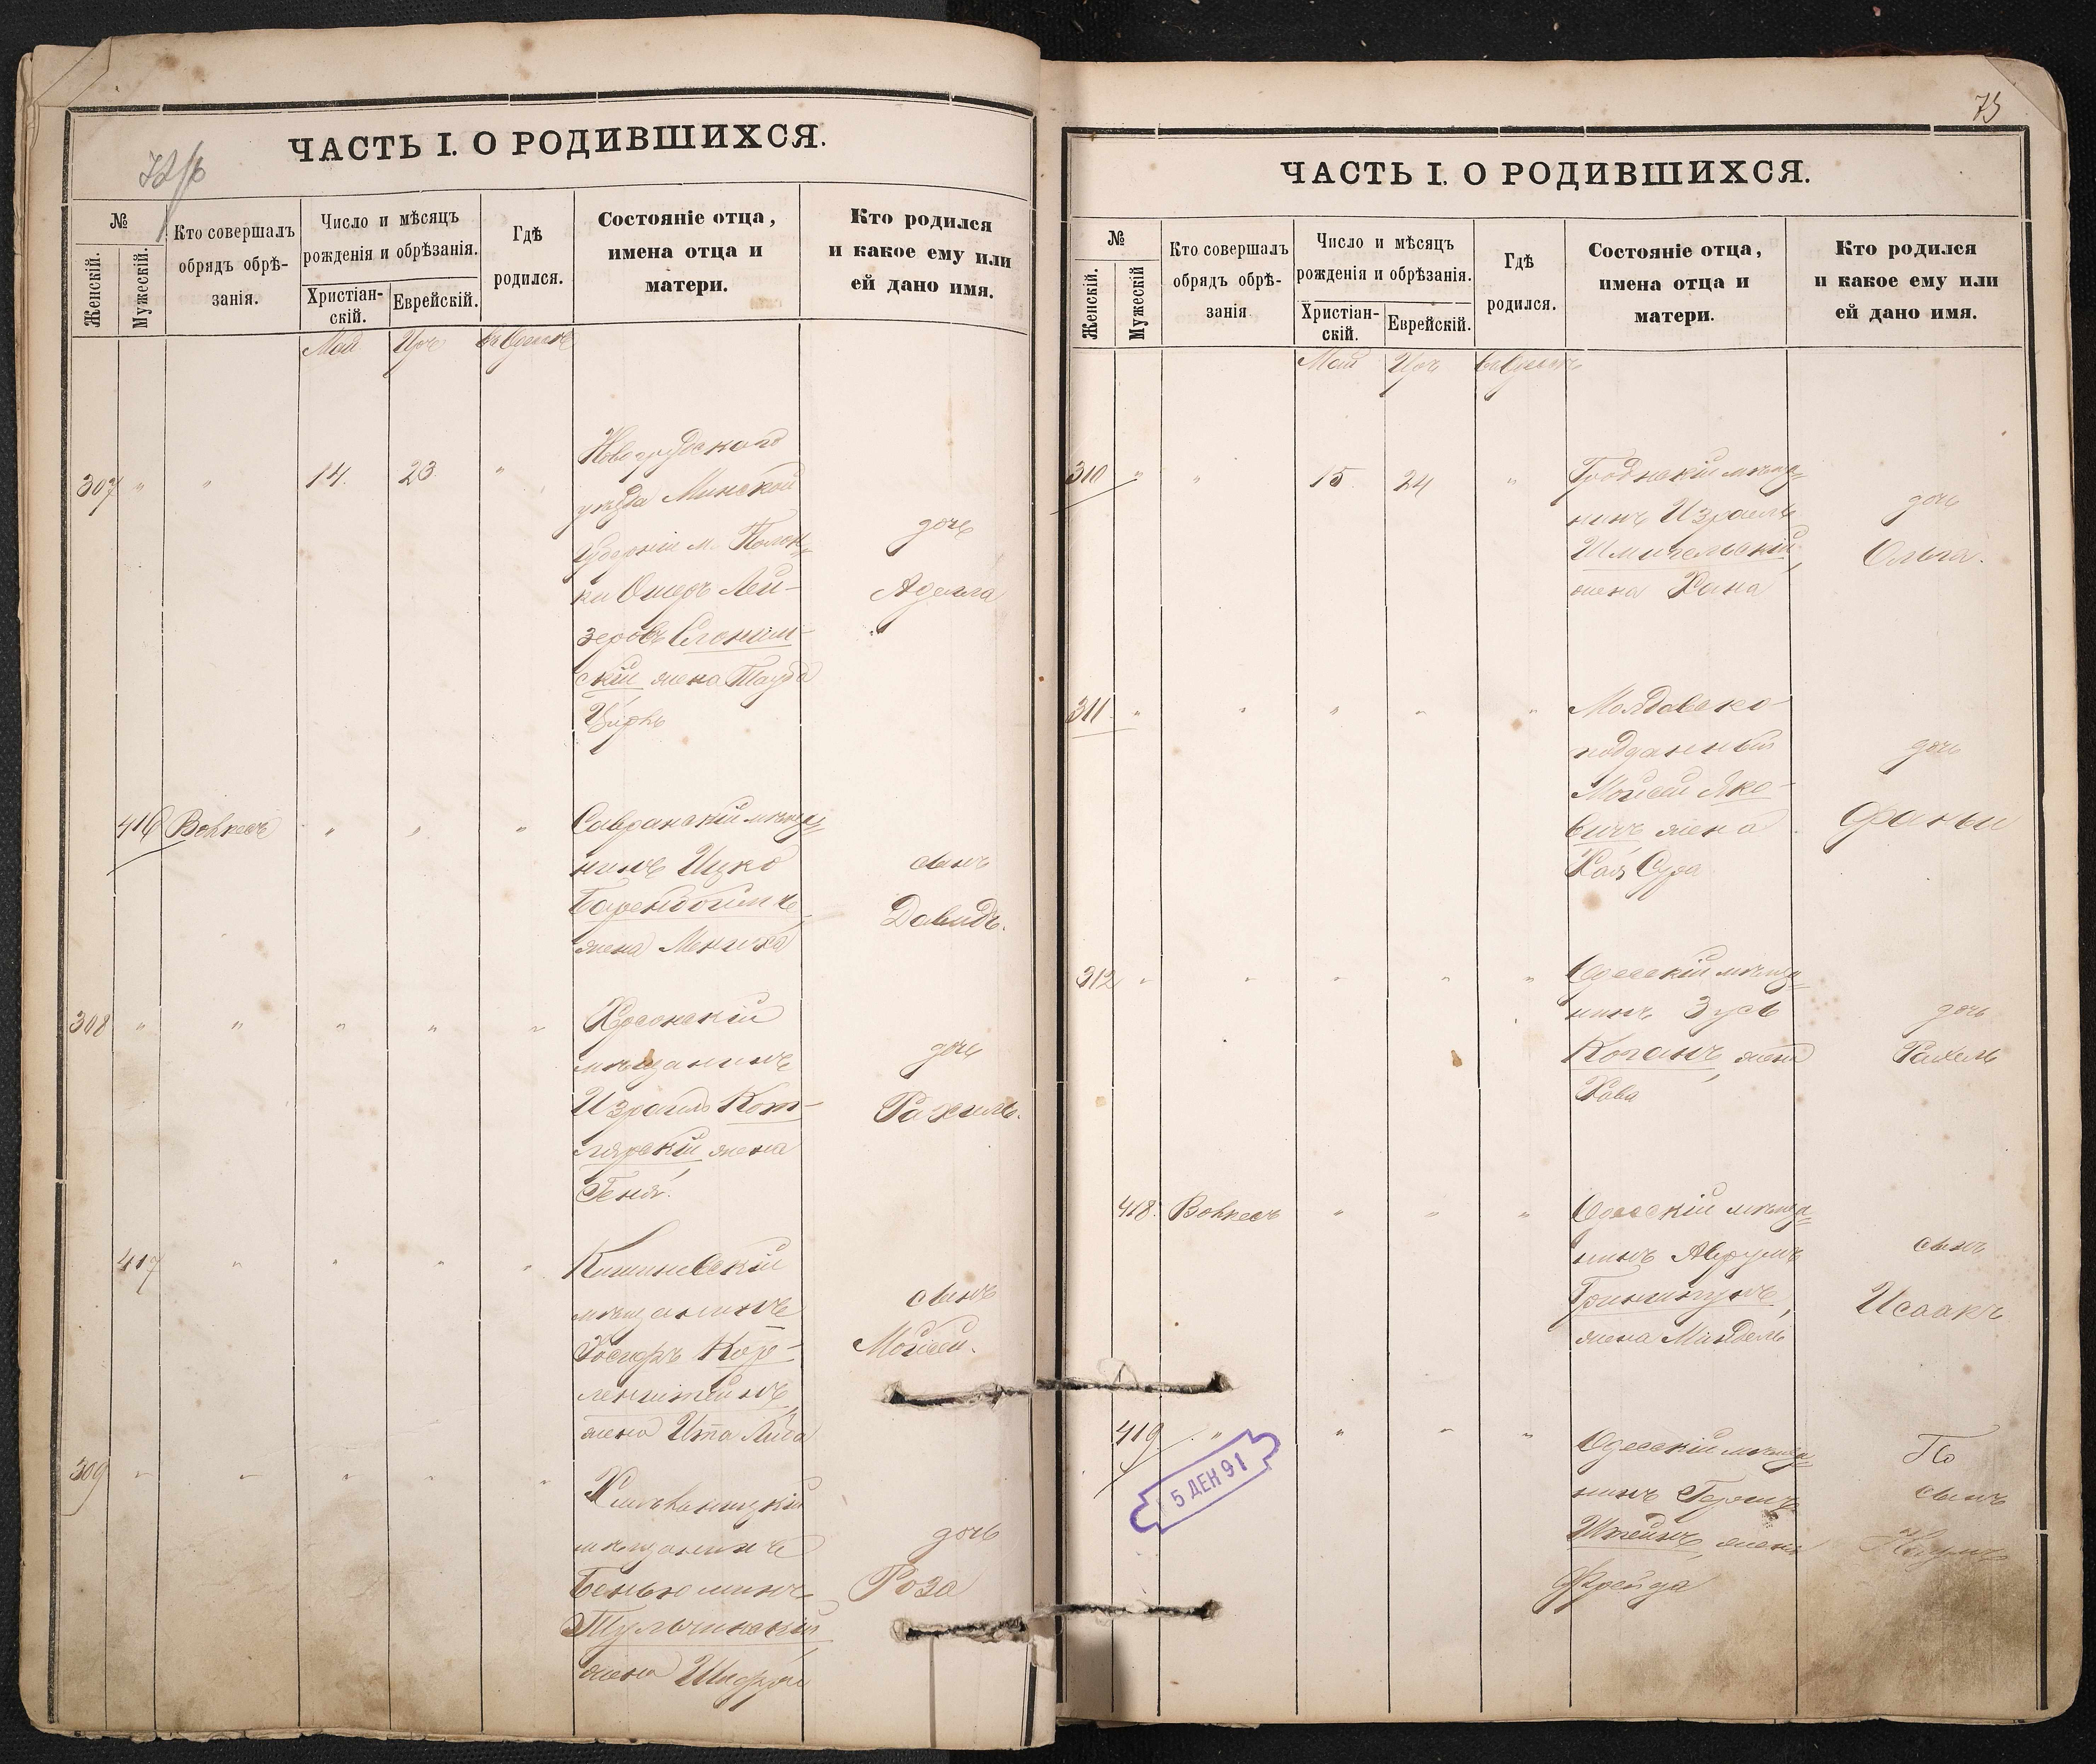 ЧАСТЬ I. О РОДИВШИХСЯ.
№
Женскій.
Мужескій.
Кто совершалъ
обрядъ обрѣ-
занія.
Число и мѣсяцъ
рожденія и обрѣзанія.
Христіан-
скій.
Еврейскій.
Гдѣ
родился.
Состояніе отца,
имена отца и
матери.
Кто родился
и какое ему или
ей дано имя.
Май Iіръ въ Одессѣ
307 " " 14. 23. "
Новогрудского
уѣзда Минской
губерніи м. Полон-
ки Ошеръ Лей-
зеровъ Слоним-
скій жена Тауба
дочь
Аделія
416 " " "
Савранскій мѣща-
нинъ Ицко
Баренбоймъ,
жена Мениха
сынъ
Давидъ.
308 " " " " "
Херсонскій
мѣщанинъ
Израиль Кот-
лярскій жена
Геня.
дочь
Рахиль.
417 " " " "
Кишиневскій
мѣщанинъ
Іосифъ Коре-
ленштейнъ,
жена Ита Либа
сынъ
Мойсей.
309 " " " " "
Хмельницкій
мѣщанинъ
Беньюминъ
Тульчинскій
жена Шифра
дочь
Роза
75
ЧАСТЬ I. О РОДИВШИХСЯ.
№
Женскій.
Мужескій
Кто совершалъ
обрядъ обрѣ-
занія
Число и мѣсяцъ
рожденія и обрѣзанія.
Христіан-
скій.
Еврейскій.
Гдѣ
родился.
Состояніе отца,
имена отца и
матери.
Кто родился
и какое ему или
ей дано имя.
Май Iіръ въ Одессѣ
310 " " 15 24 "
Гродненскій мѣща-
нинъ Израель
Шмигельскій,
жена Хана
дочь
Ольга.
311 " " " " "
Молдавско-
подданный
Мойсей Яко-
вичъ жена
Хая Сура
дочь
Фаньи
312 " " " " "
Одесскій мѣща-
нинъ Зусь
Коганъ, жена
Хава
дочь
Рахель
418. " " "
Одесскій мѣща-
нинъ Аврумъ
жена Миндель
сынъ
Исаакъ
419 " " " "
Одесскій мѣща-
нинъ Гершъ
Штейнъ, жена
Фрейда
сынъ
5 ДЕК 91